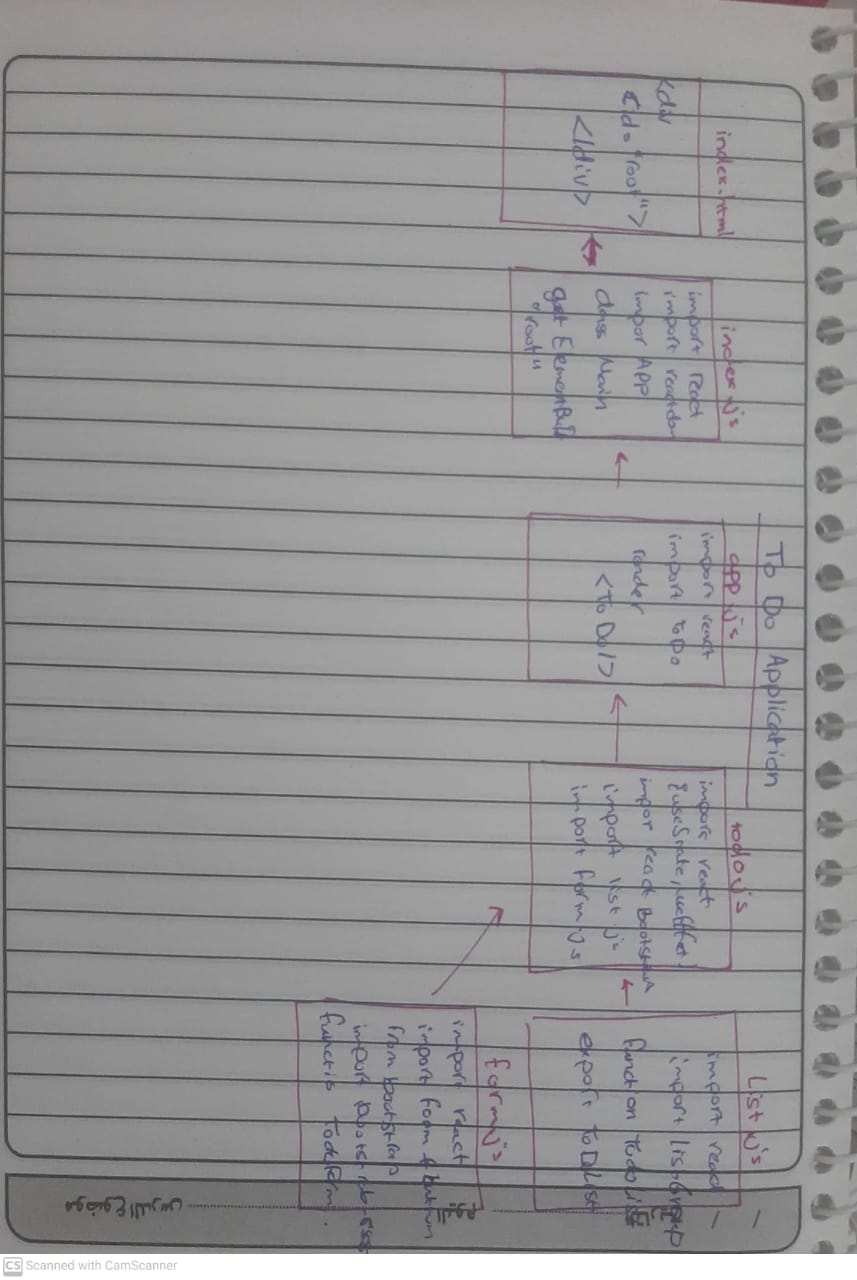 To Do Application
index.html
<div
id="root">
</div>
index.js
import react
import reactdom
impor App
class Main
"root"
app.js
import react
import ToDo
render
<To Do/>
todo.js
import react
impor react Bootstrap
import list js
import form js
List js
import react
import ListGroup
function Todo list
export ToDo List
form js
import react
import form & button
from bootstrap
import bootstrap-css
function Todoform.
موضوع الدرس
CS Scanned with CamScanner